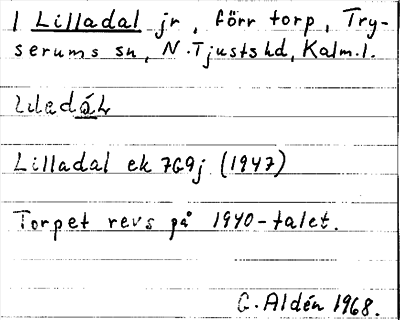 1 Lilladal jr, förr torp, Try-
serums sn, N. Tjusts hd, Kalm. l.
Lilladal ek 7G9j (1947)
Torpet revs på 1940-talet.
G. Aldén 1968.